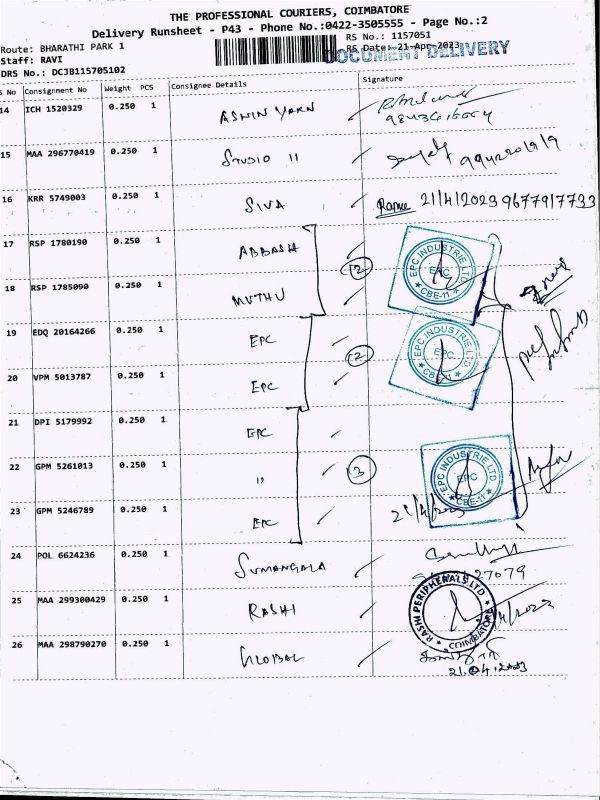 THE PROFESSIONAL COURIERS, COIMBATORE
Delivery Runsheet - P43 - Phone No.:0422-3505555 - Page No.:2
Route: BHARATHI PARK 1 RS No.: 1157051
Staff: RAVI RS Date: 21-Apr-2023
DOCUMENT DELIVERY
DRS No.: DCJB115705102
S No Consignment No Weight PCS Consignee Details Signature
14 ICH 1520329 0.250 1 ASWIN YARN
15 MAA 296770419 0.250 1 STUDIO 11
16 KRR 5749003 0.250 1 SIVA 21/4/2023 9677917733
17 RSP 1780190 0.250 1 ABBASH
2
EPC INDUSTRIE LTD EPC CBE-11
18 RSP 1785090 0.250 1 MUTHU
19 EDQ 20164266 0.250 1 EPC
2
EPC INDUSTRIE LTD EPC CBE-11
20 VPM 5013787 0.250 1 EPC
21 DPI 5179992 0.250 1 EPC
22 GPM 5261013 0.250 1 "
3
EPC INDUSTRIE LTD EPC CBE-11
23 GPM 5246789 0.250 1 EPC 21/4/2023
24 POL 6624236 0.250 1 SUMANGALA
27079
25 MAA 299300429 0.250 1 RASHI
RASHI PERIPHERALS LTD COIMBATORE
26 MAA 298790270 0.250 1 GLOBAL
21.04.2023